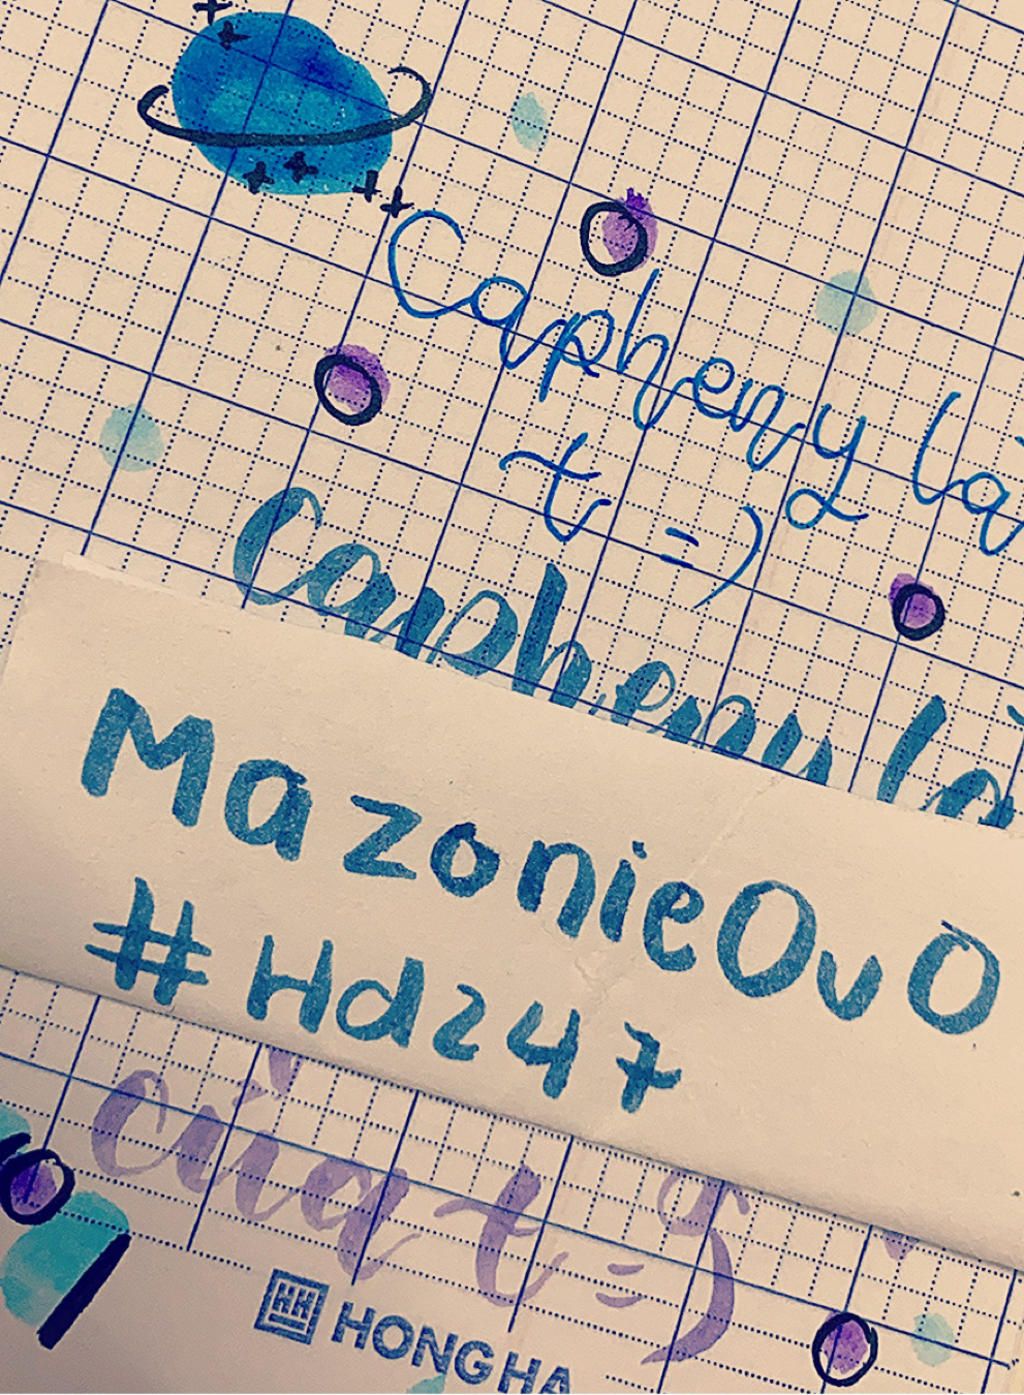 Capheny là
t =)
Capheny là
MazonieOvO
#Hd247
của t =)
HONG HA